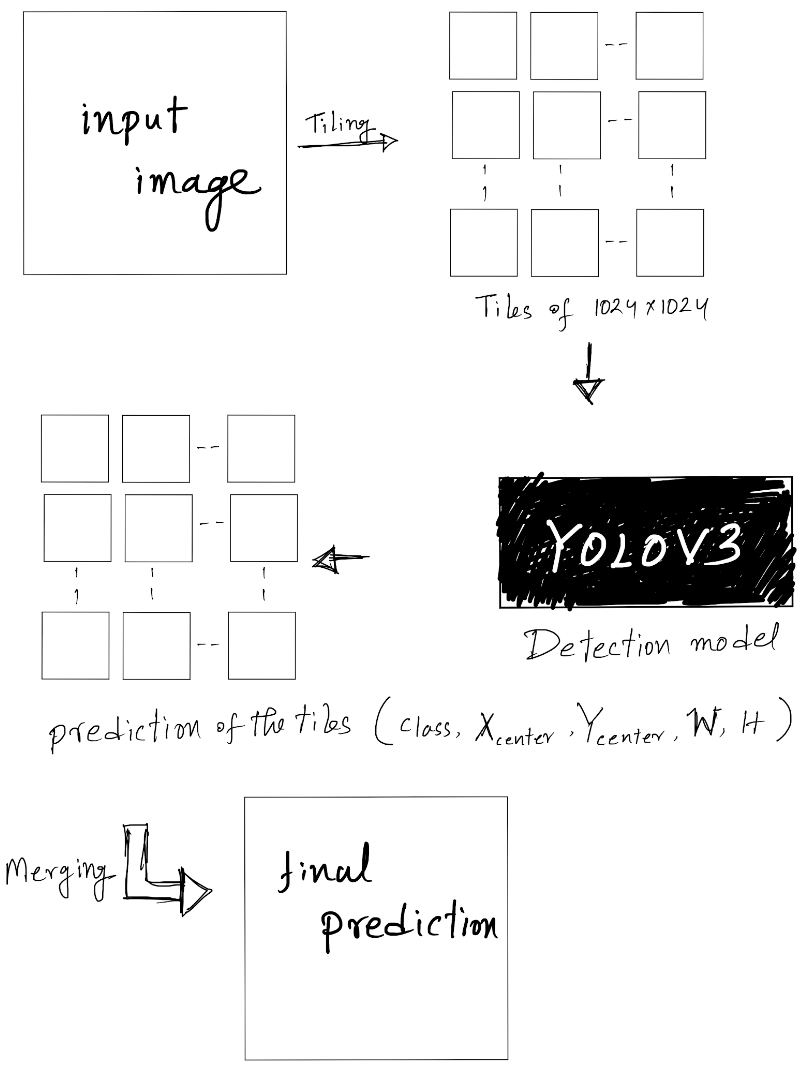 input
image
Tiling
Tiles of 1024 x 1024
YOLOV3
Detection model
prediction of the tiles (class, Xcenter, Ycenter, W, H)
Merging
final
prediction